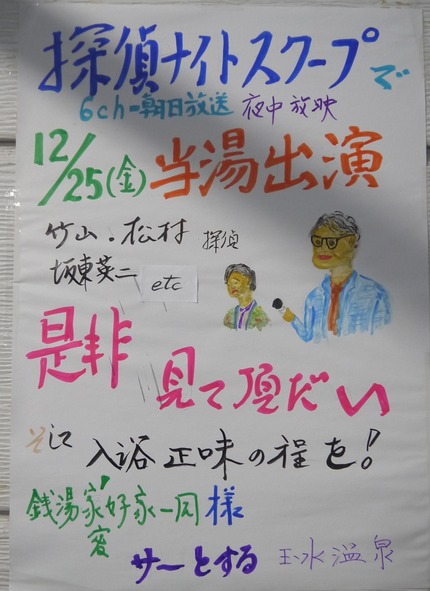 探偵ナイトスクープで
6ch-朝日放送 夜中放映
12/25(金) 当湯出演
竹山.松村 探偵
坂東英二 etc
是非 見て頂だい
そして 入浴正味の程を!
銭湯家好家一同様
変
サーとする 玉水温泉